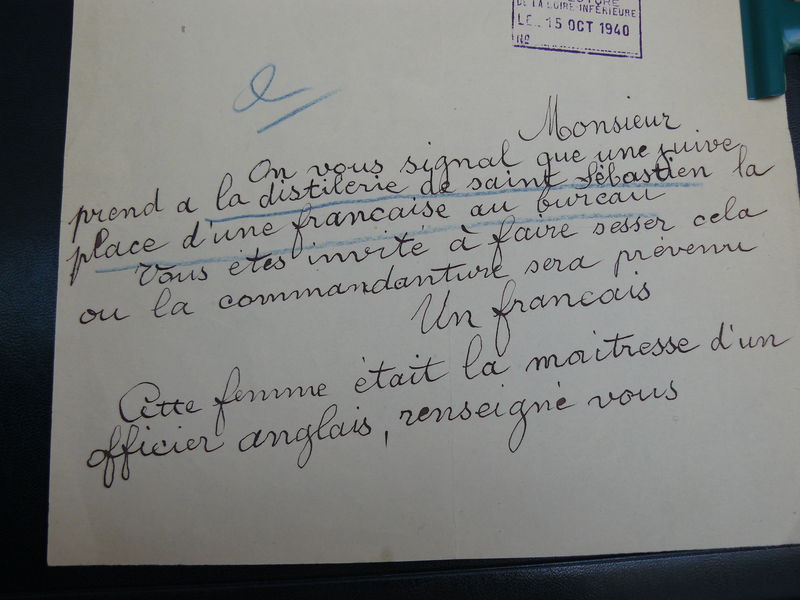 DE LA LOIRE INFÉRIEURE
LE. 15 OCT 1940
No
Monsieur
On vous signal que une juive
prend a la distilerie de saint Sébastien la
place d'une francaise au bureau
Vous étes invité à faire sesser cela
ou la commandanture sera prévenu
Un francais
Cette femme était la maitresse d'un
officier anglais, renseigné vous